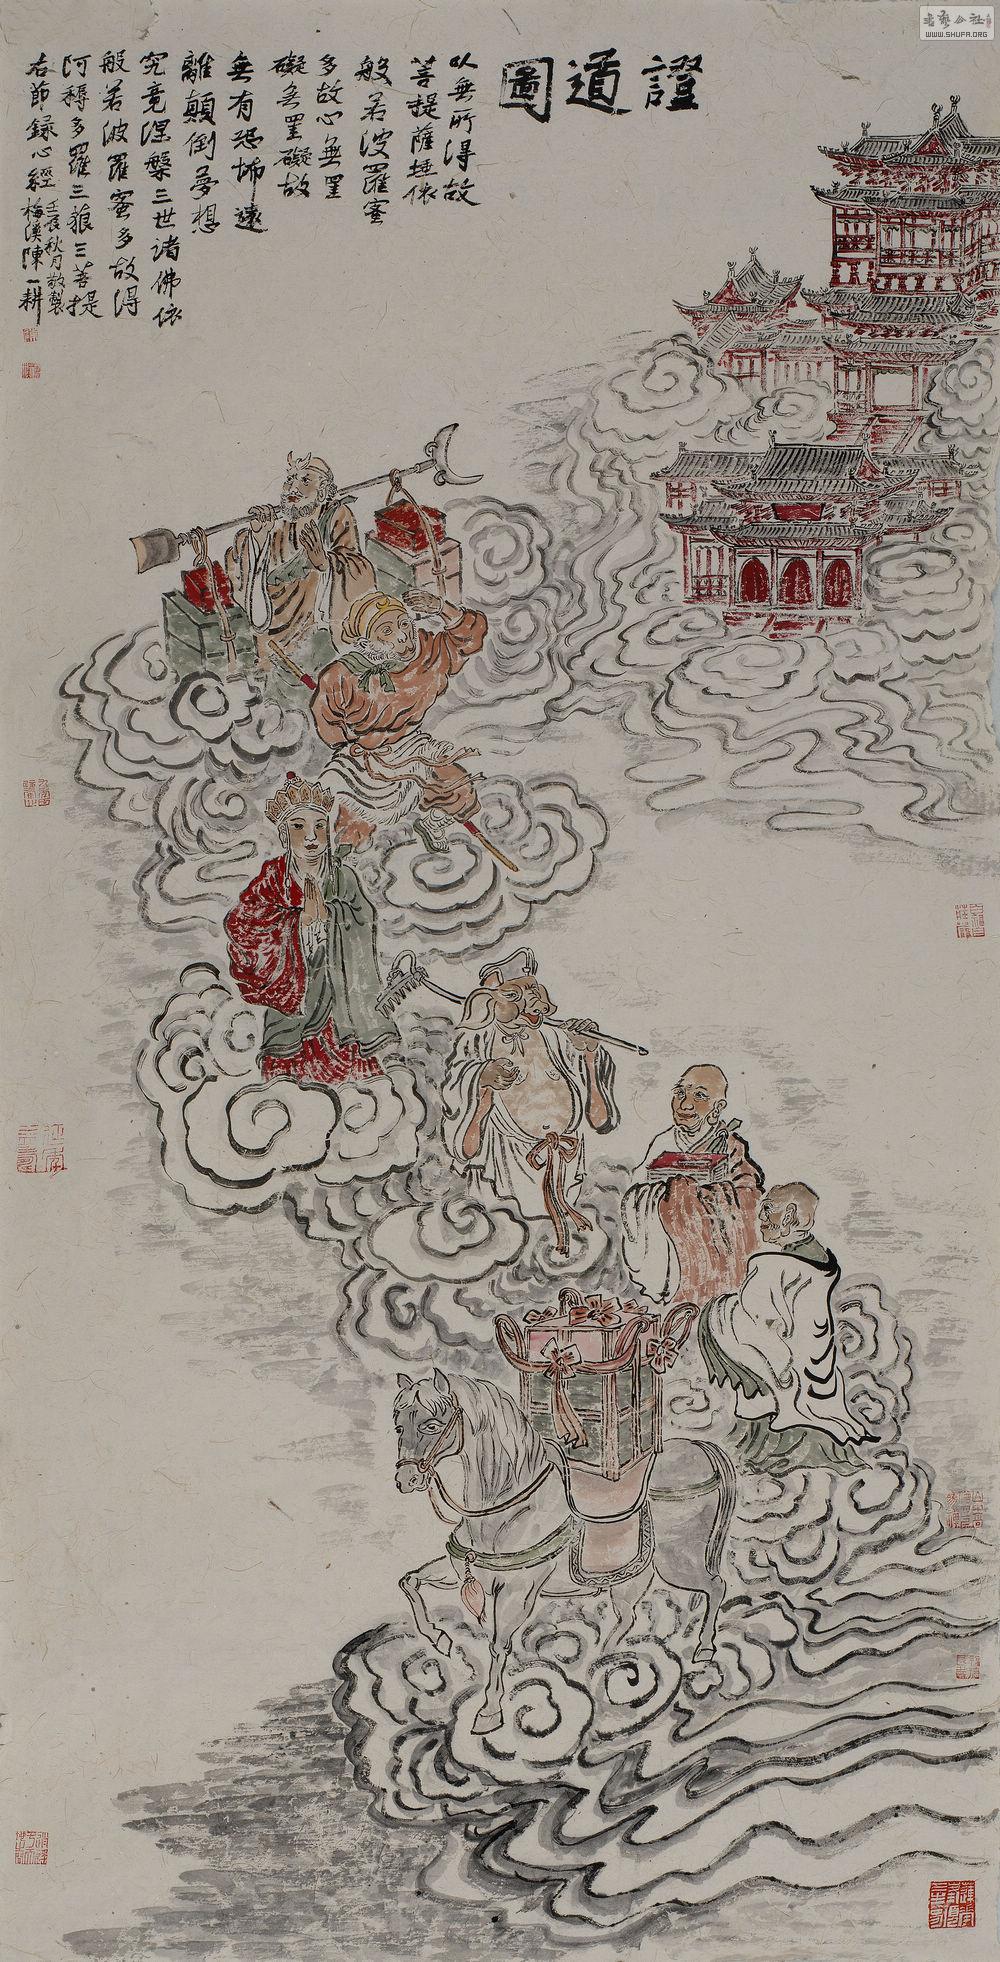 證道圖
以無所得故
菩提薩埵依
般若波羅蜜
多故心無罣
礙無罣礙故
無有恐怖遠
離顛倒夢想
究竟涅槃三世諸佛依
般若波羅蜜多故得
阿耨多羅三藐三菩提
右節錄心經
壬辰秋月敬製
梅溪陳一耕
WWW.SHUFA.ORG